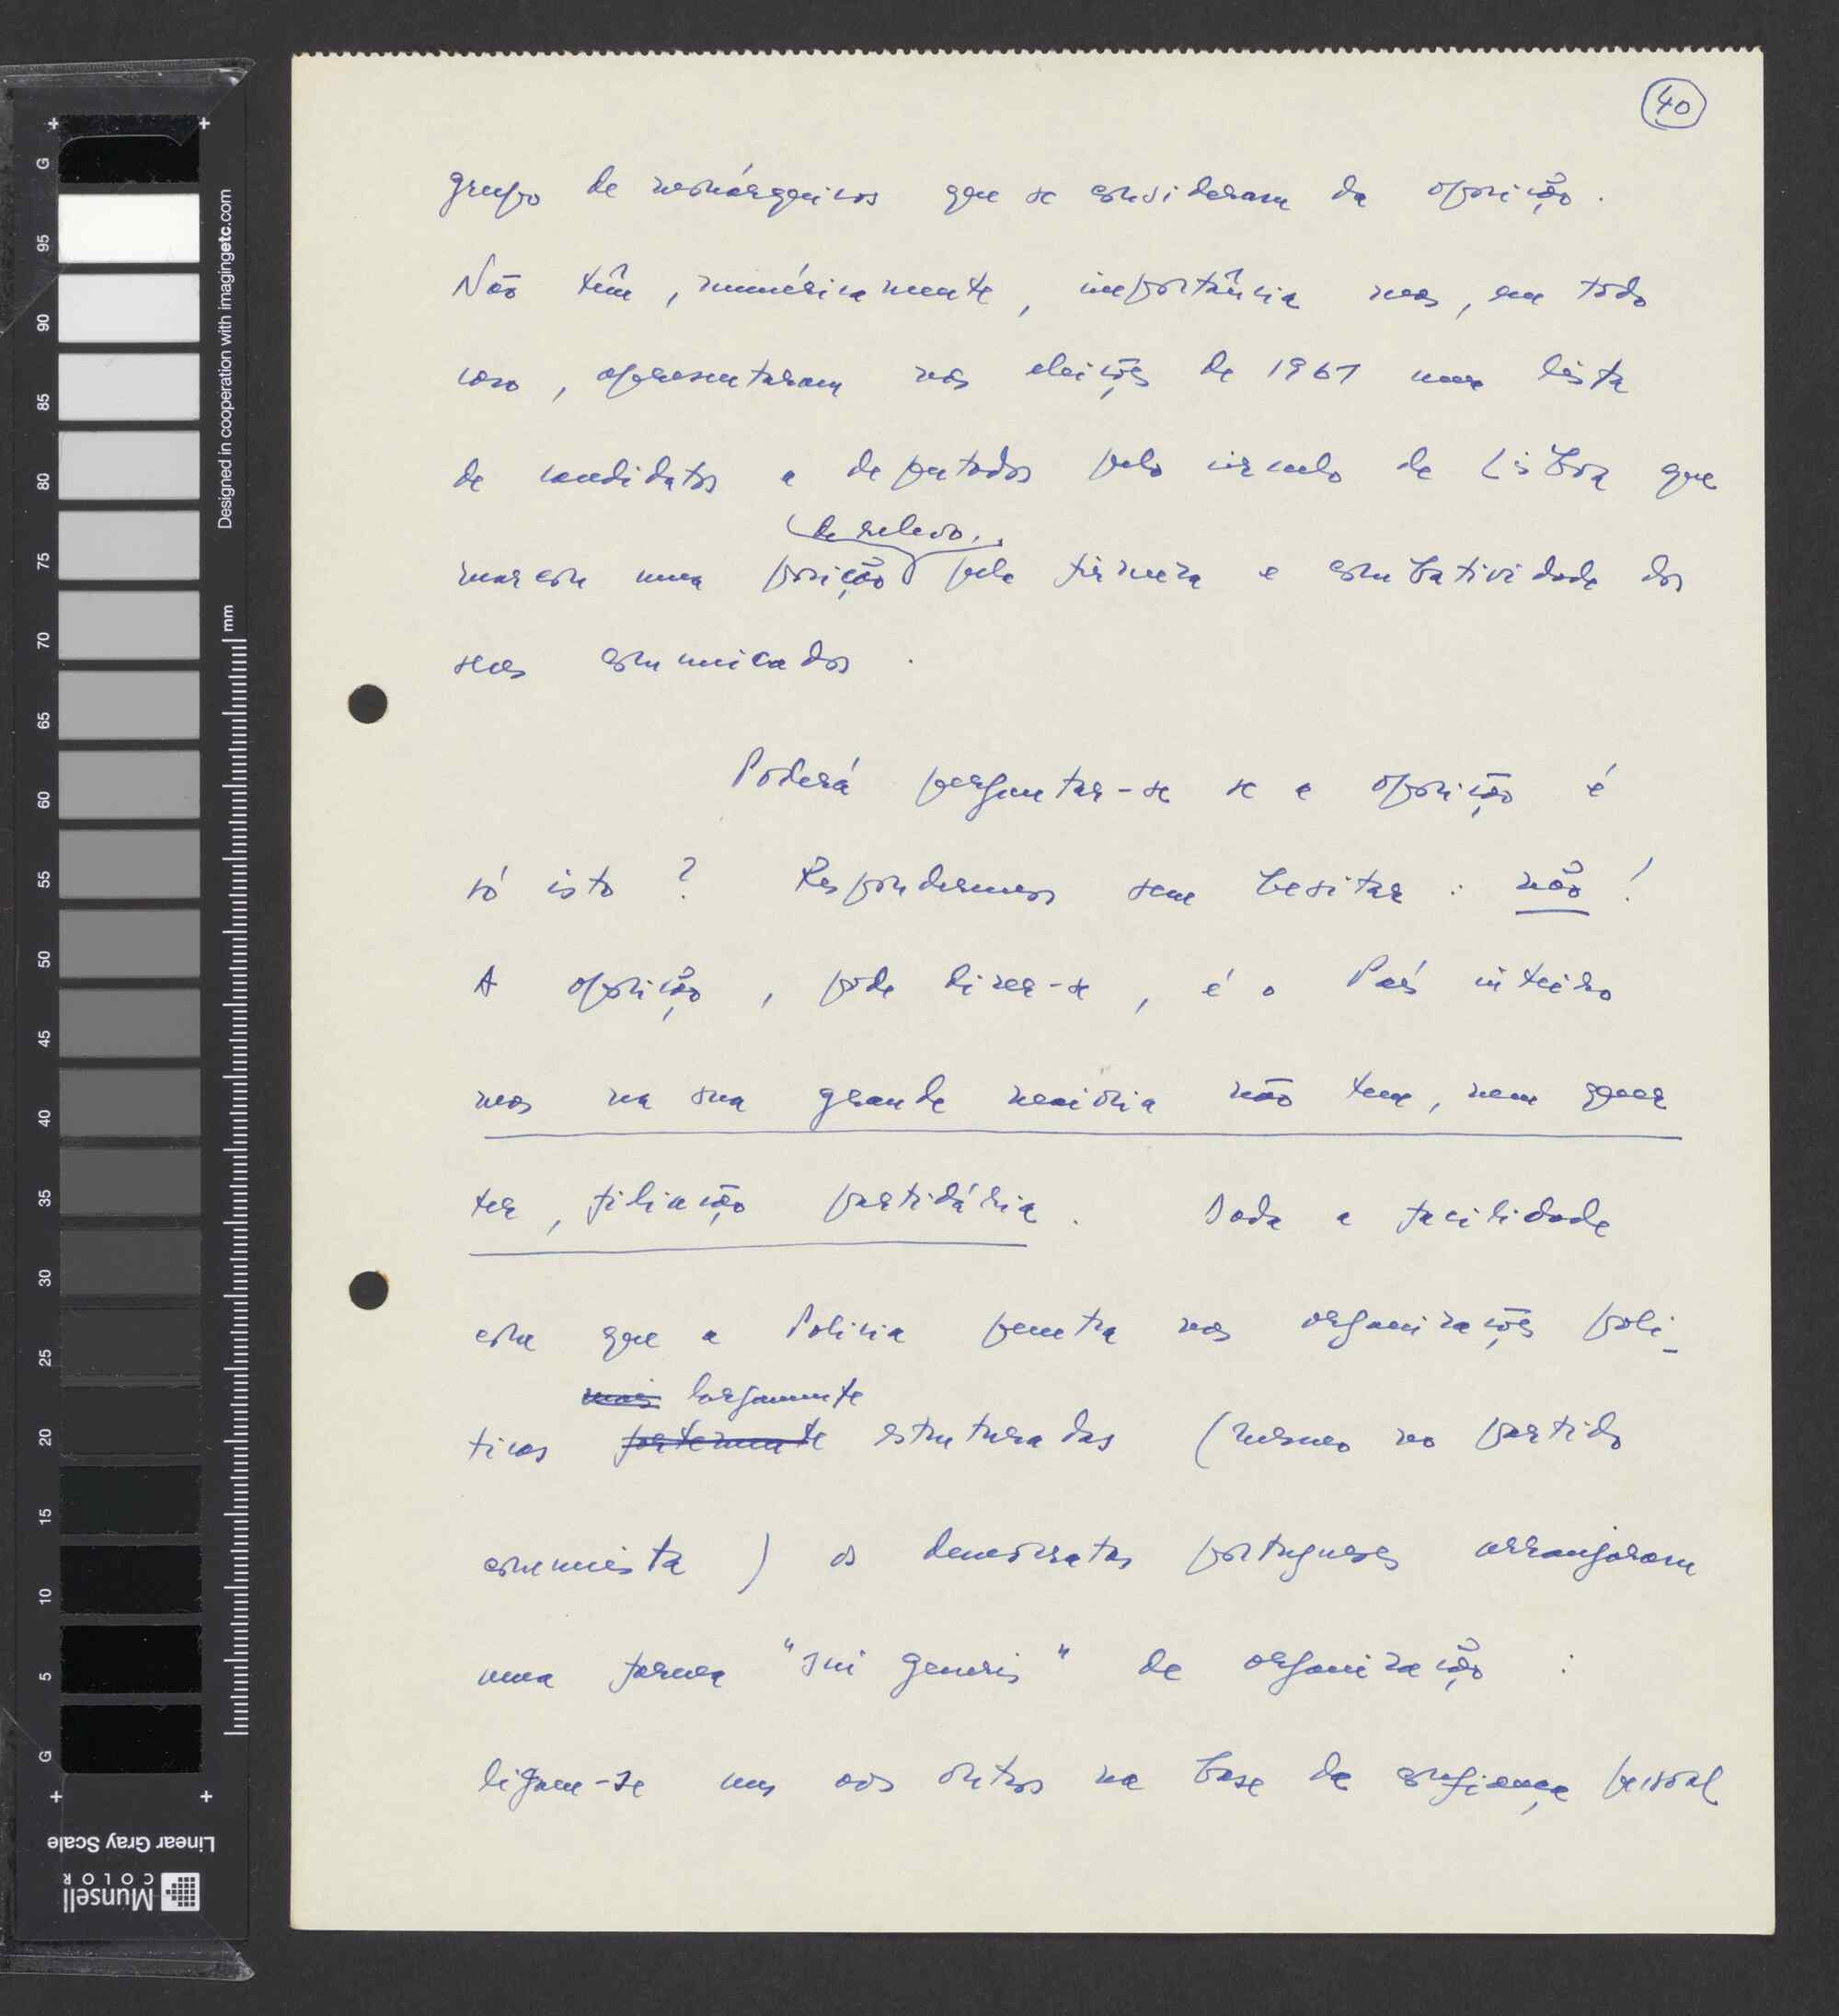 40
grupo de monárquicos que se consideram da oposição.
Não têm, numéricamente, importância mas, em todo
caso, apresentaram nas eleições de 1961 uma lista
de candidatos a deputados pelo circulo de Lisboa que
de relevo,
marcou uma posição pela firmeza e combatividade dos
seus comunicados.
Poderá perguntar-se se a oposição é
só isto? Responderemos sem hesitar: não!
A oposição, pode dizer-se, é o País inteiro
mas na sua grande maioria não tem, nem quer
ter, filiação partidária. Dada a facilidade
com que a Policia penetra nas organizações poli-
mais largamente
ticas fortemente estruturadas (mesmo no partido
comunista) os democratas portugueses arranjaram
uma forma "sui generis" de organização:
ligam-se uns aos outros na base da confiança pessoal
G
95
90
85
80
75
70
65
60
55
50
45
40
35
30
25
20
15
10
5
G
Designed in cooperation with imagingetc.com
mm
Linear Gray Scale
Munsell
COLOR